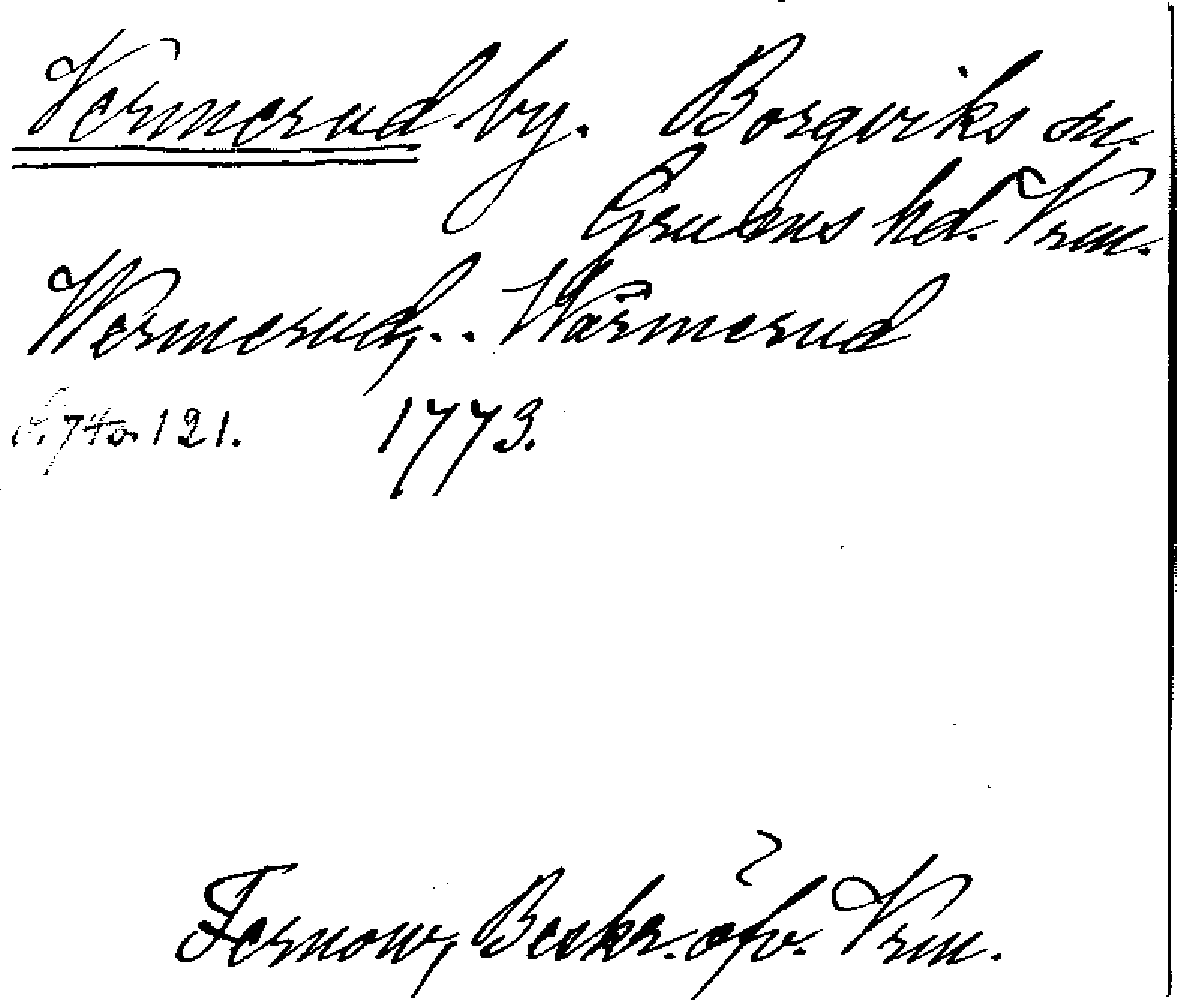 Vermerud by. Borgviks sn.
Grums hd. Vrm.
Wermerud, .. Wärmerud
s. 740. 121. 1773.
Fernow, Beskr. öfv. Vrm.